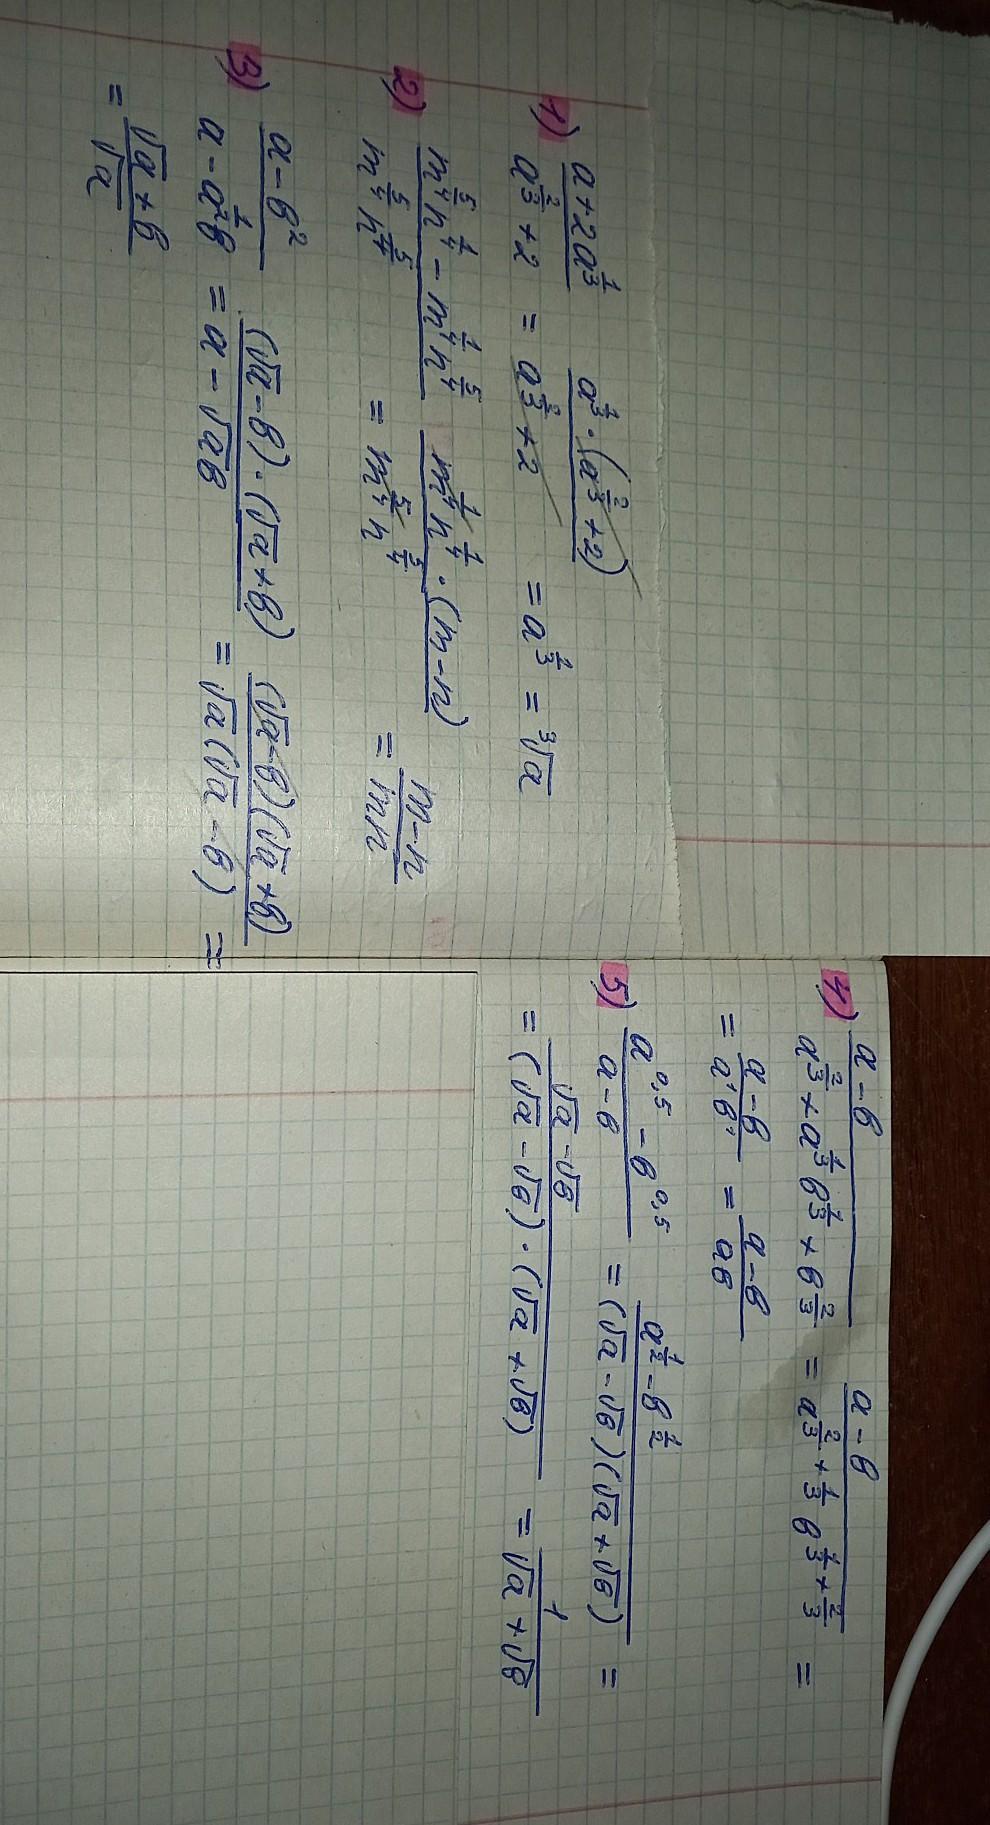 1) \frac{a+2a^{\frac{1}{3}}}{a^{\frac{2}{3}}+2} = \frac{a^{\frac{1}{3}} \cdot (a^{\frac{2}{3}}+2)}{a^{\frac{2}{3}}+2} = a^{\frac{1}{3}} = \sqrt[3]{a}
2) \frac{m^{\frac{5}{4}}n^{\frac{1}{4}} - m^{\frac{1}{4}}n^{\frac{5}{4}}}{m^{\frac{5}{4}}n^{\frac{5}{4}}} = \frac{m^{\frac{1}{4}}n^{\frac{1}{4}} \cdot (m-n)}{m^{\frac{5}{4}}n^{\frac{5}{4}}} = \frac{m-n}{mn}
3) \frac{a-b^2}{a-a^{\frac{1}{2}}b} = \frac{(\sqrt{a}-b) \cdot (\sqrt{a}+b)}{a-\sqrt{a}b} = \frac{(\sqrt{a}-b)(\sqrt{a}+b)}{\sqrt{a}(\sqrt{a}-b)} =
= \frac{\sqrt{a}+b}{\sqrt{a}}
4) \frac{a-b}{a^{\frac{2}{3}}+a^{\frac{1}{3}}b^{\frac{1}{3}}+b^{\frac{2}{3}}} = \frac{a-b}{a^{\frac{2}{3}+\frac{1}{3}}b^{\frac{1}{3}+\frac{2}{3}}} =
= \frac{a-b}{a^1b^1} = \frac{a-b}{ab}
5) \frac{a^{0,5}-b^{0,5}}{a-b} = \frac{a^{\frac{1}{2}}-b^{\frac{1}{2}}}{(\sqrt{a}-\sqrt{b})(\sqrt{a}+\sqrt{b})} =
= \frac{\sqrt{a}-\sqrt{b}}{(\sqrt{a}-\sqrt{b}) \cdot (\sqrt{a}+\sqrt{b})} = \frac{1}{\sqrt{a}+\sqrt{b}}